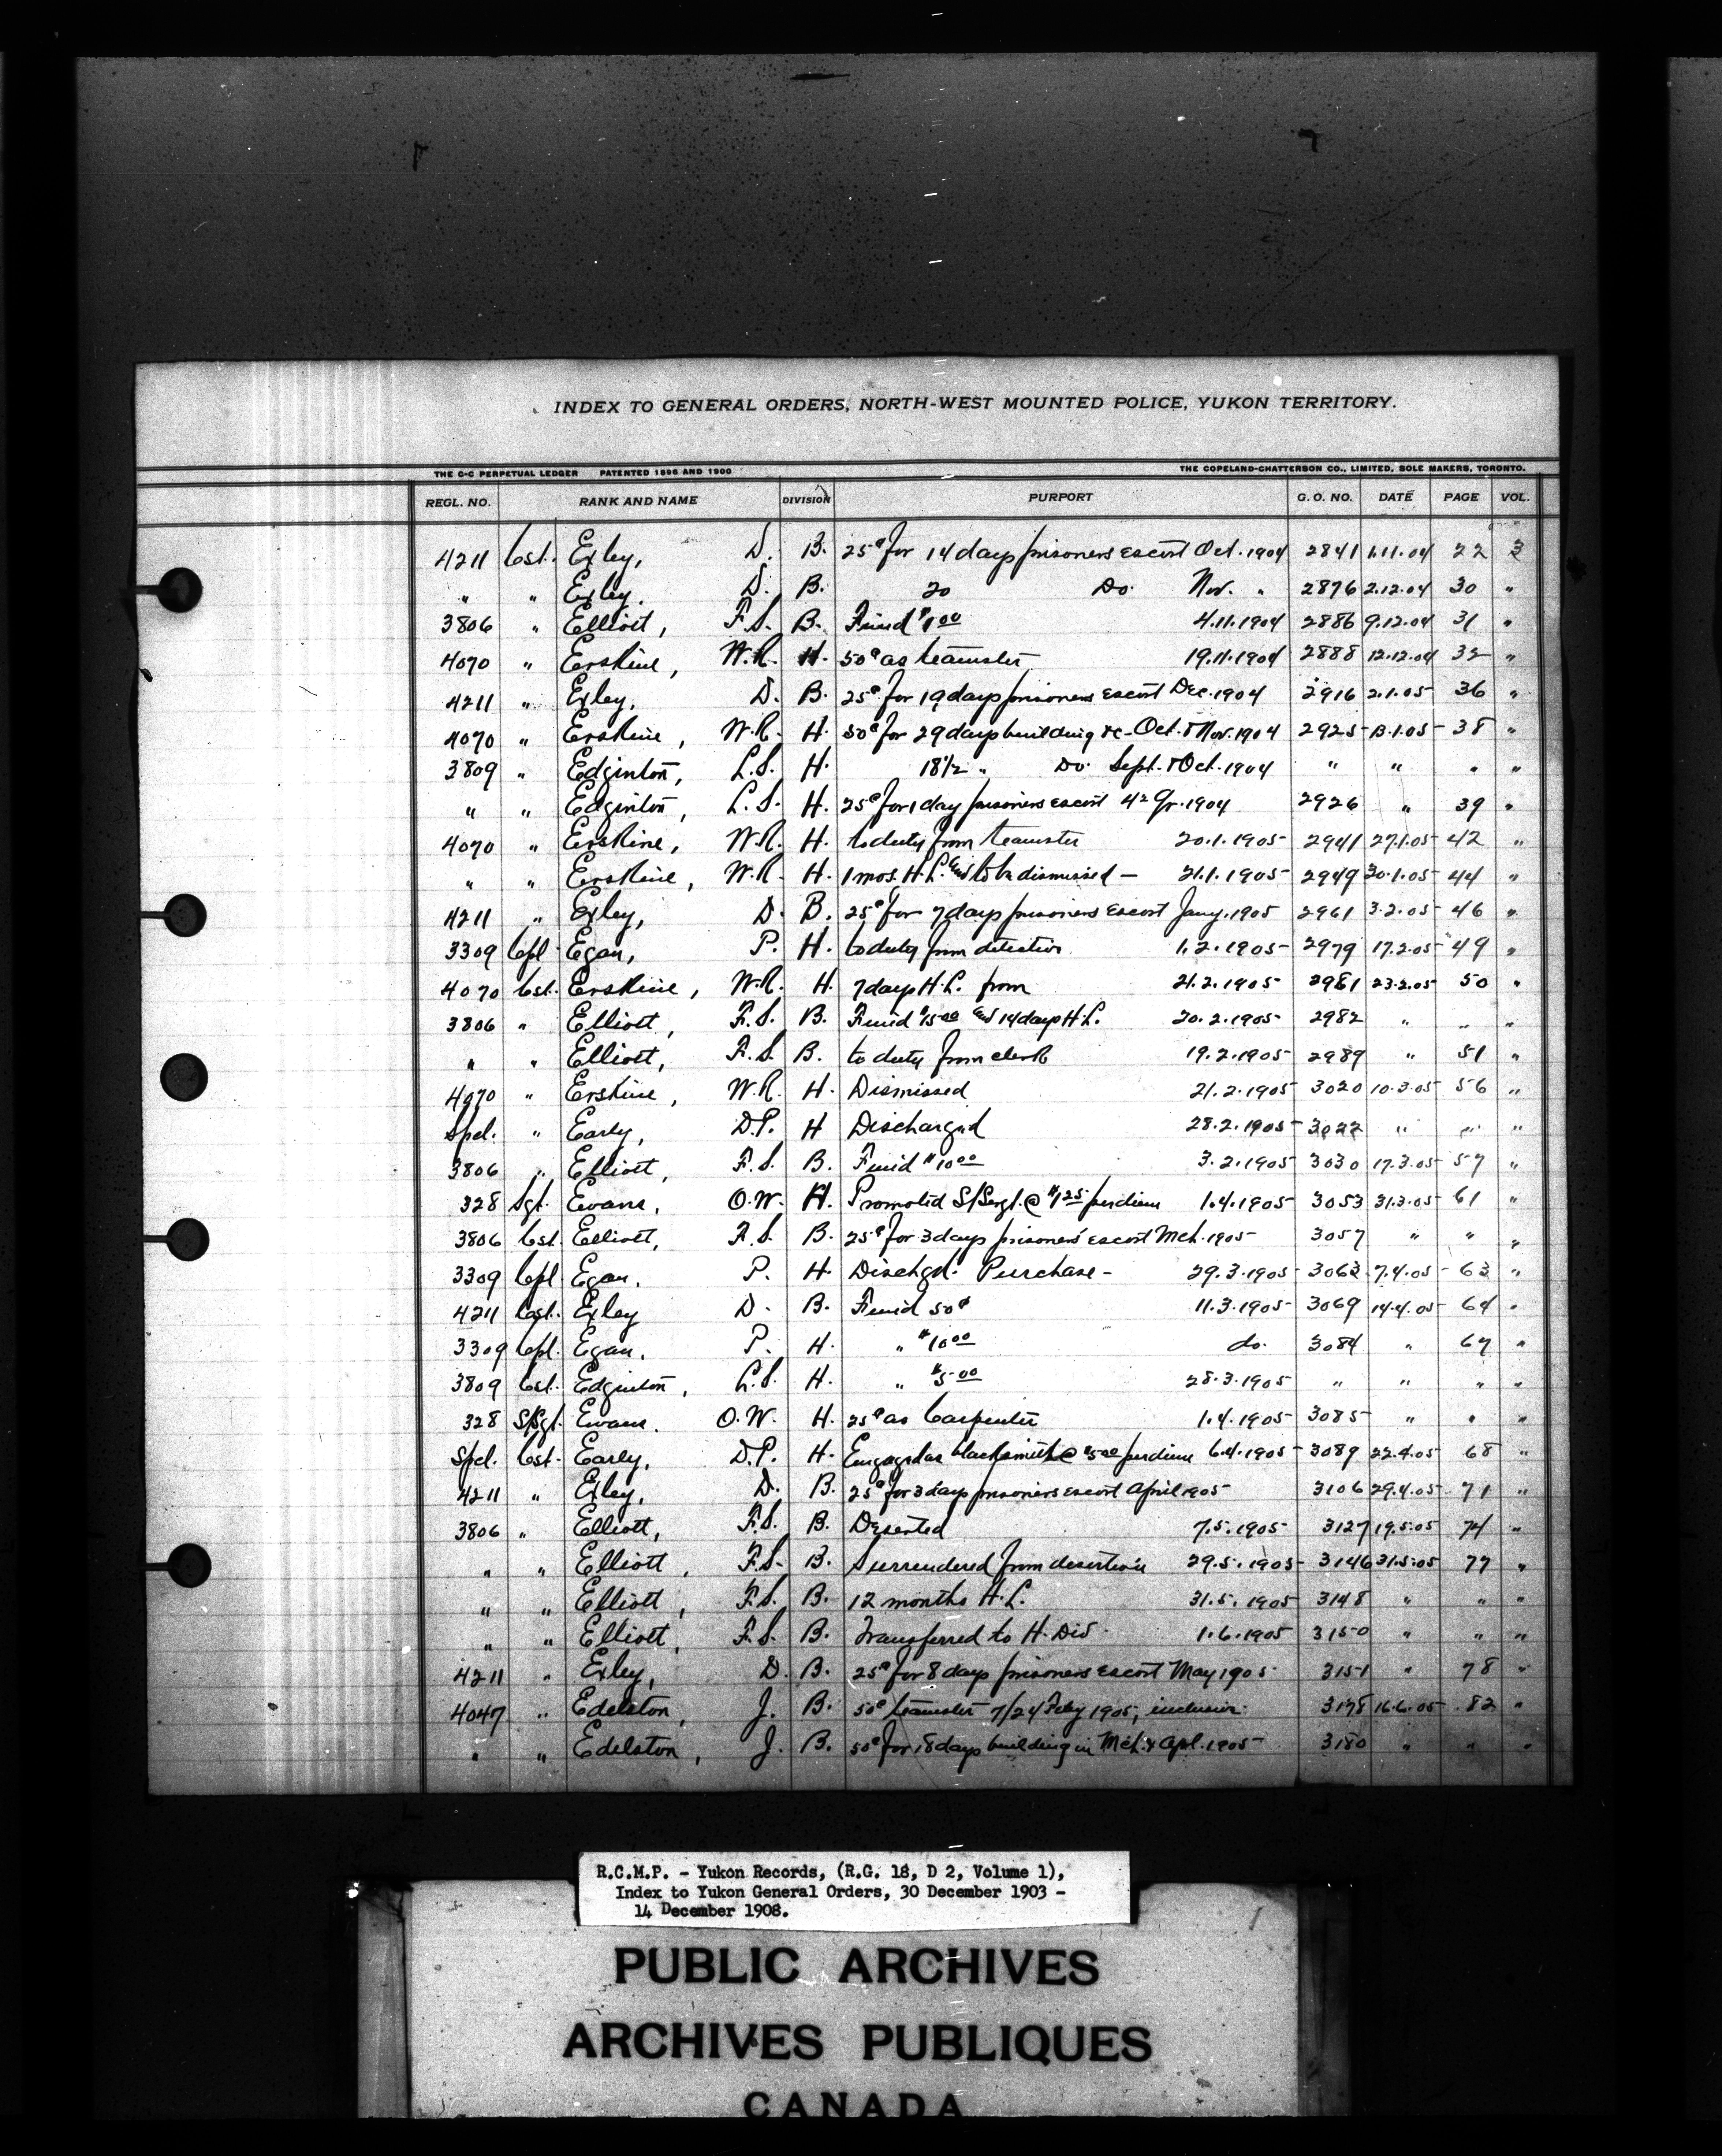 INDEX TO GENERAL ORDERS, NORTH-WEST MOUNTED POLICE, YUKON TERRITORY.
THE C-C PERPETUAL LEDGER PATENTED 1896 AND 1900 THE COPELAND-CHATTERSON CO., LIMITED, SOLE MAKERS, TORONTO.
REGL. NO. RANK AND NAME DIVISION PURPORT G. O. NO. DATE PAGE VOL.
4211 Cst. Exley, D. B. 25¢ for 14 days prisoners escort Oct. 1904 2841 1.11.04 22 3
" " Exley, D. B. 20 Do. Nov. " 2876 2.12.04 30 "
3806 " Elliott, F.S. B. Fined $1.00 4.11.1904 2886 9.12.04 31 "
4070 " Erskine, W.R. H. 50¢ as teamster 19.11.1904 2888 12.12.04 32 "
4211 " Exley, D. B. 25¢ for 19 days prisoners escort Dec. 1904 2916 2.1.05 36 "
4070 " Erskine, W.R. H. 50¢ for 29 days building &c. Oct. & Nov. 1904 2925 13.1.05 38 "
3809 " Edginton, L.S. H. 18½ " Do. Sept. & Oct. 1904 " " " "
" " Edginton, L.S. H. 25¢ for 1 day prisoners escort 4th Qr. 1904 2926 " 39 "
4070 " Erskine, W.R. H. to duty from teamster 20.1.1905 2941 27.1.05 42 "
" " Erskine, W.R. H. 1 mos. H.L. and to be dismissed — 21.1.1905 2949 30.1.05 44 "
4211 " Exley, D. B. 25¢ for 7 days prisoners escort Jany. 1905 2961 3.2.05 46 "
3309 Cpl. Egan, P. H. to duty from detective 1.2.1905 2979 17.2.05 49 "
4070 Cst. Erskine, W.R. H. 7 days H.L. from 21.2.1905 2981 23.2.05 50 "
3806 " Elliott, F.S. B. Fined $15.00 and 14 days H.L. 20.2.1905 2982 " " "
" " Elliott, F.S. B. to duty from clerk 19.2.1905 2989 " 51 "
4070 " Erskine, W.R. H. Dismissed 21.2.1905 3020 10.3.05 56 "
Spcl. " Early, D.P. H Discharged 28.2.1905 3022 " " "
3806 " Elliott, F.S. B. Fined $10.00 3.2.1905 3030 17.3.05 57 "
328 Sgt. Evans, O.W. H. Promoted S/Sergt. @ $1.25 perdiem 1.4.1905 3053 31.3.05 61 "
3806 Cst. Elliott, F.S. B. 25¢ for 3 days prisoners' escort Mch. 1905 3057 " " "
3309 Cpl. Egan, P. H. Dischgd. Purchase - 29.3.1905 3063 7.4.05 63 "
4211 Cst. Exley D. B. Fined 50¢ 11.3.1905 3069 14.4.05 64 "
3309 Cpl. Egan, P. H. " $10.00 do. 3084 " 67 "
3809 Cst. Edginton, L.S. H. " $5.00 28.3.1905 " " " "
328 S/Sgt. Evans. O.W. H. 25¢ as Carpenter 1.4.1905 3085 " " "
Spcl. Cst. Early, D.P. H. Engaged as blacksmith @ $5.00 perdiem 6.4.1905 3089 22.4.05 68 "
4211 " Exley, D. B. 25¢ for 3 days prisoners escort April 1905 3106 29.4.05 71 "
3806 " Elliott, F.S. B. Deserted 7.5.1905 3127 19.5.05 74 "
" " Elliott, F.S. B. Surrendered from desertion 29.5.1905 3146 31.5.05 77 "
" " Elliott, F.S. B. 12 months H.L. 31.5.1905 3148 " " "
" " Elliott, F.S. B. Transferred to H. Div. 1.6.1905 3150 " " "
4211 " Exley, D. B. 25¢ for 8 days prisoners escort May 1905 3151 " 78 "
4047 " Edelston, J. B. 50¢ teamster 7/24 Feby 1905, inclusive 3178 16.6.05 82 "
" " Edelston, J. B. 50¢ for 18 days building in Mch. & Apl. 1905 3180 " " "
R.C.M.P. - Yukon Records, (R.G. 18, D 2, Volume 1),
Index to Yukon General Orders, 30 December 1903 -
14 December 1908.
PUBLIC ARCHIVES
ARCHIVES PUBLIQUES
CANADA